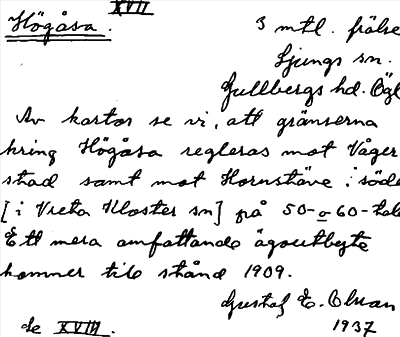 XVII
Högåsa. 3 mtl. frälse
Ljungs sn.
Gullbergs hd. Ögl
Av kartor se vi, att gränserna
kring Högåsa regleras mot Våger
stad samt mot Hornstäve i söde
[i Vreta Kloster sn] på 50- o 60-tale
Ett mera omfattande ägoutbyte
kommer till stånd 1909.
Gustaf E.
de XVIII. 1937